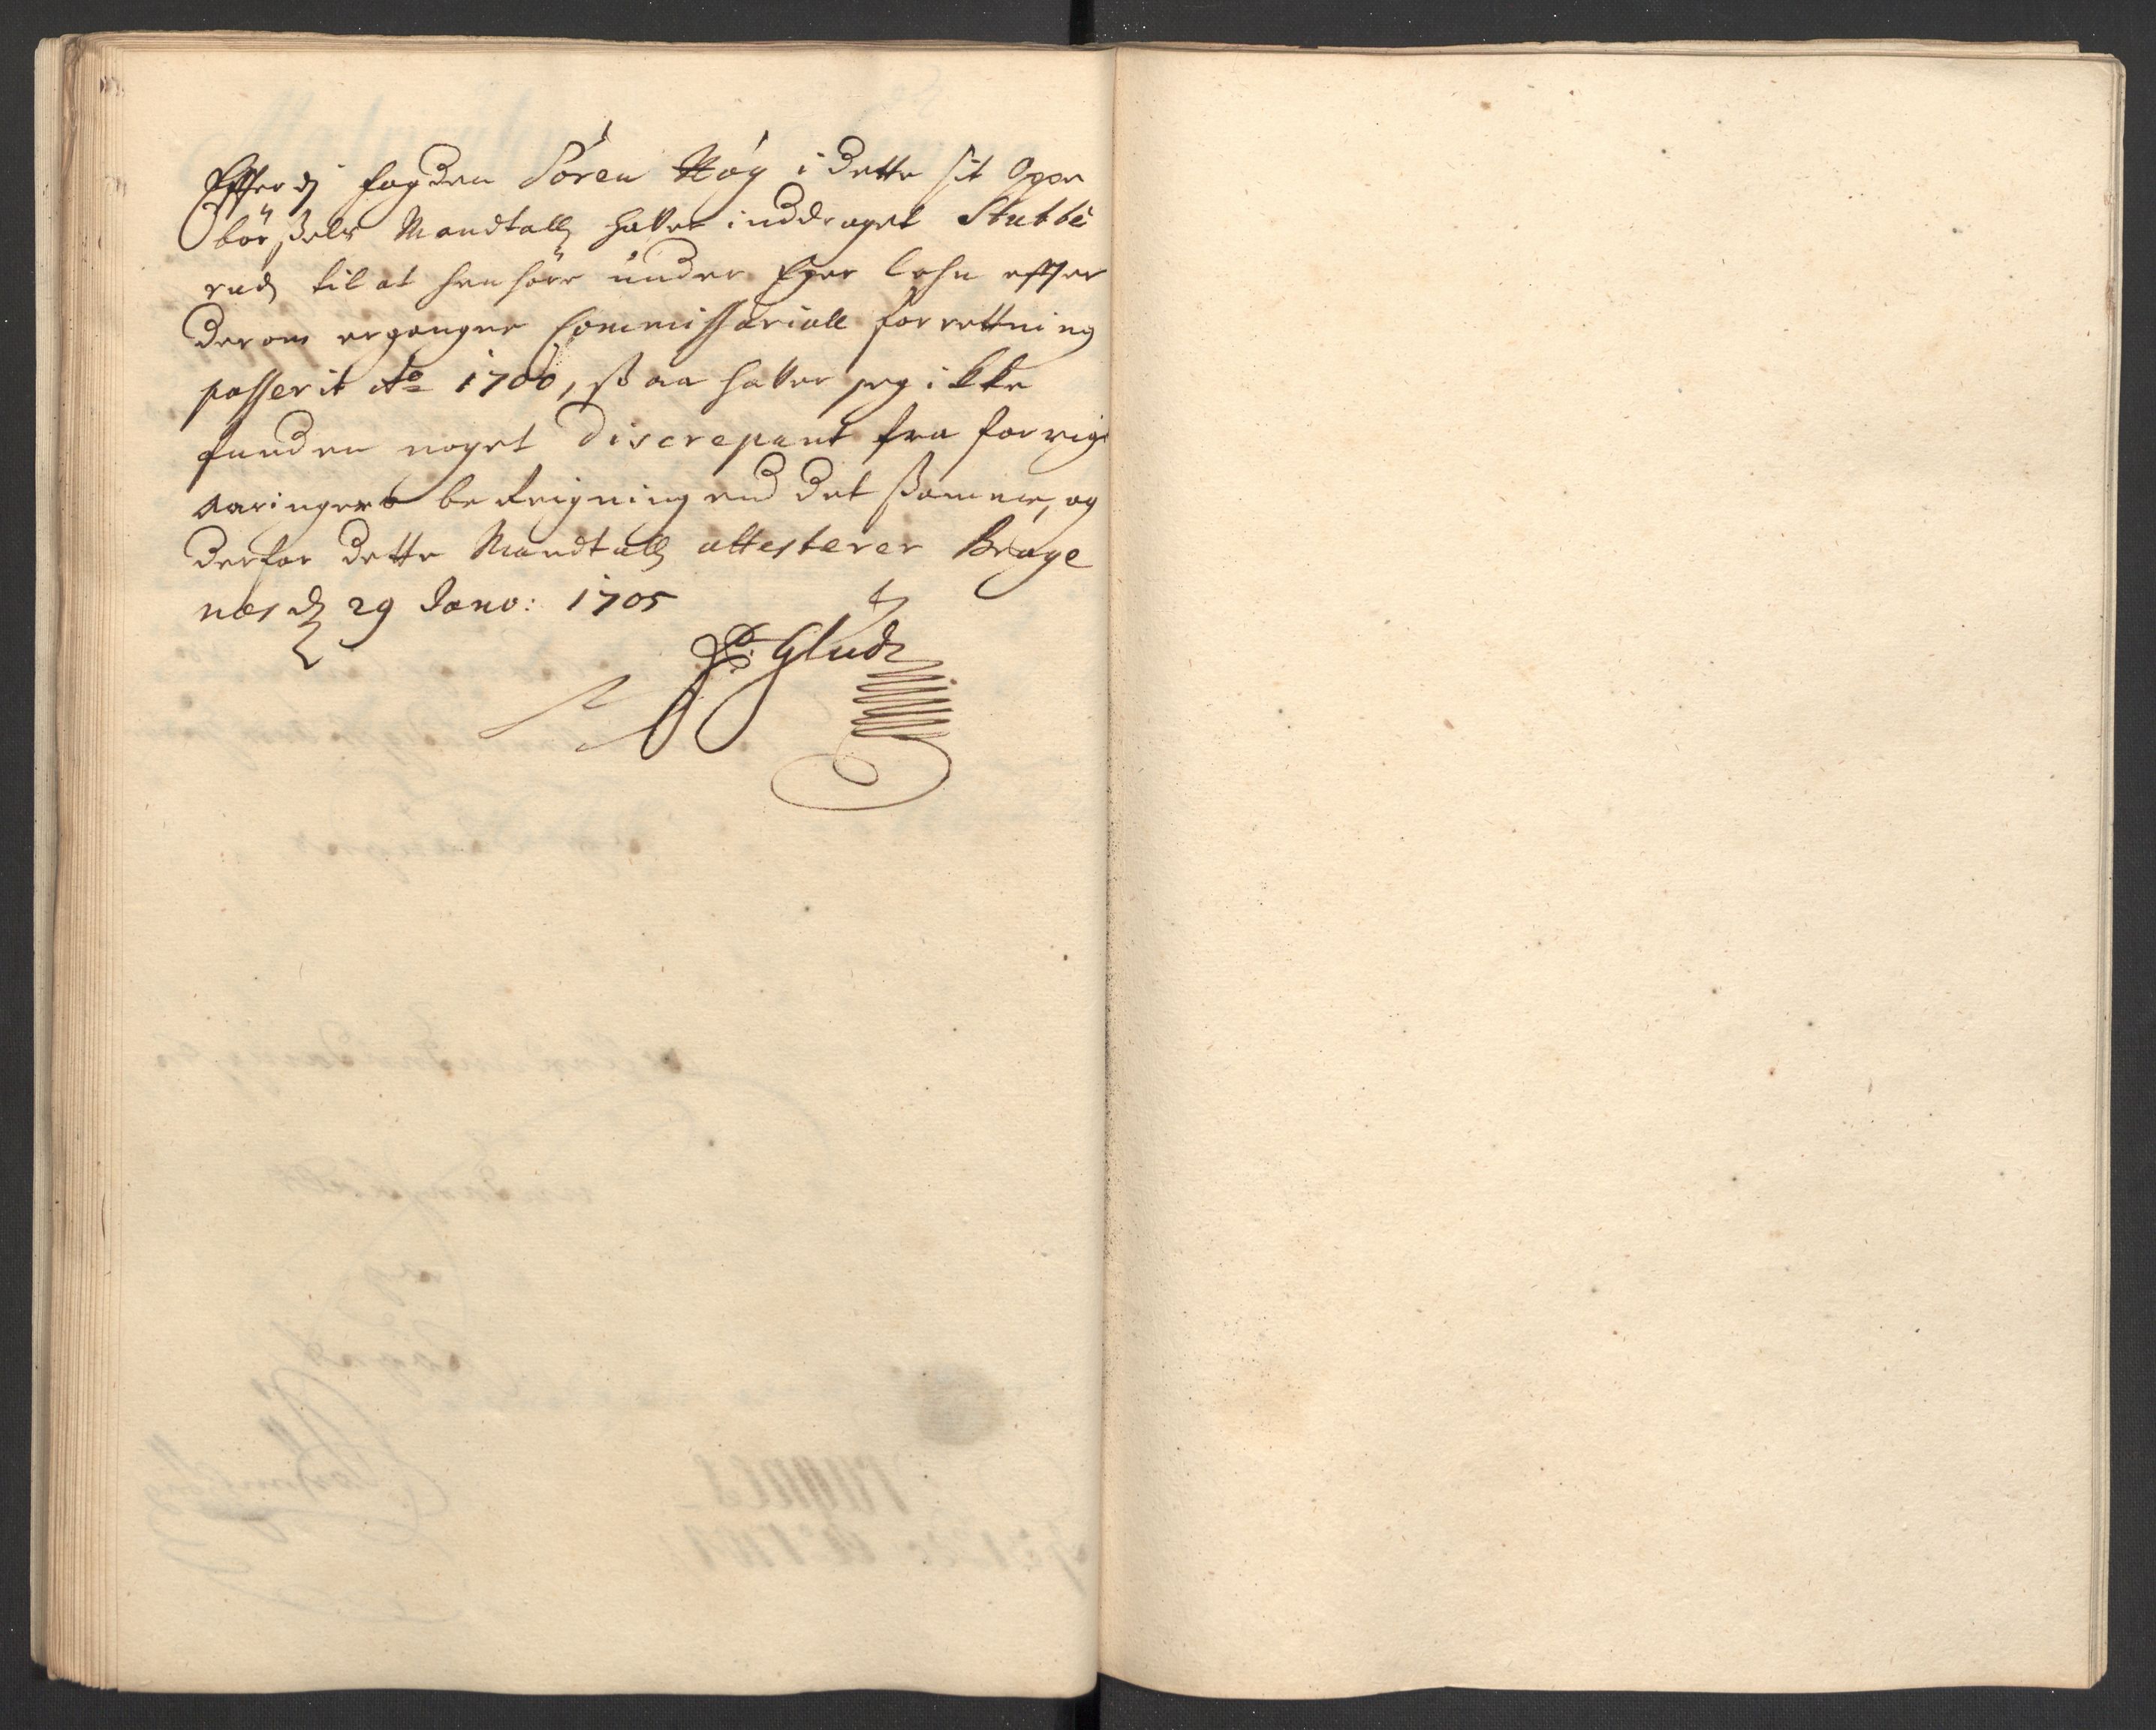 Effterdj fogden Sören Höy i dette sit Oppe
börßels Mandtall hafver inddraget Stubbe
rud til at henhöre under Eger lehn effter
derom ergangne Commissariall forrettning
passerit Ao 1700, ßaa hafver jeg ikke
funden noget discrepant fra forrige
aaringers bereigning end det ßamme, og
derfor dette Mandtall attesterer Brage
nes d 29 Janv: 1705
P: Glud